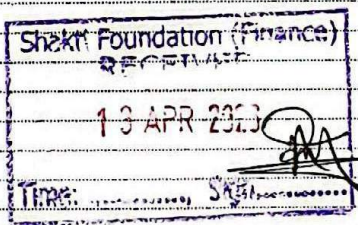 Shakti Foundation (Finance)
RECEIVED
13 APR 2023
Time: ............ Sig:............